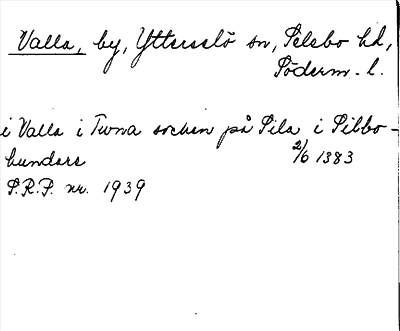 Valla, by, Ytterselö sn, Selebo hd,
Söderm. l.
i Valla i Tuna socken på Sila i Silbo-
hundare 2/6 1383
S.R.P. nr. 1939